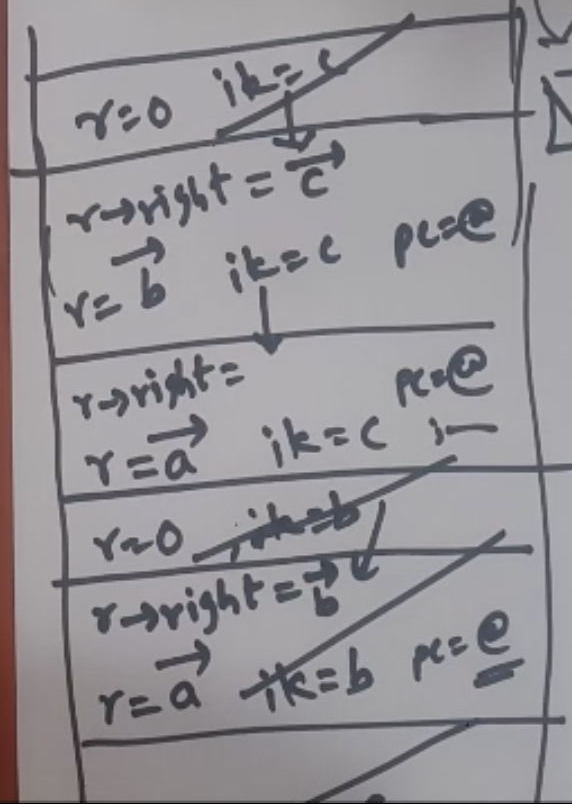 r=0 ik=c
r→right = c⃗
r=b⃗ ik=c pc=@
r→right= pc=@
r=a⃗ ik=c
r=0 ik=b
r→right=b⃗
r=a⃗ ik=b pc=@